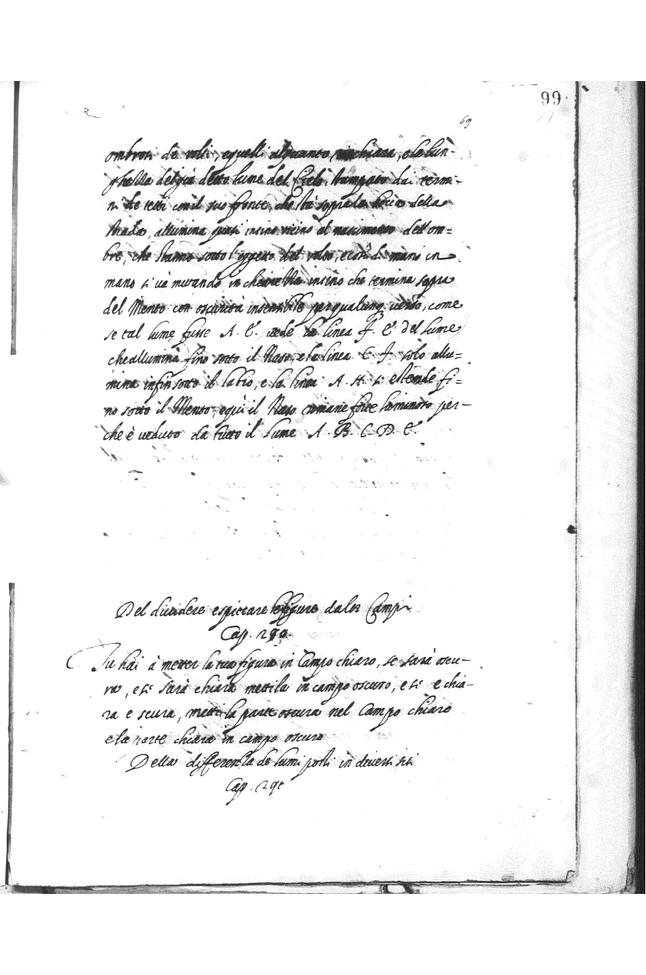 99
69
ombrosi de volti, e quelli alquanto inchiara, e la lun-
ghezza del gia detto lume del Cielo stampato da i termi-
ni de tetti con il suo fronte, che sta sopra la bocca della
strada, allumina quasi insino vicino al nascimento dell'om-
bre che stanno sotto l'oggetto del volto, e così di mano in
mano si và mutando in chiarezza insino che termina sopra
del Mento con oscurità insensibile per qualunq; verso, come
se tal lume fusse A. E., vede la linea F. E. del lume
che allumina fino sotto il Naso, e la linea C. F. solo allu-
mina infin sotto il labro, e la linea A. H. si estende fi-
no sotto il Mento, e qui il Naso rimane forte luminoso per-
che è veduto da tutto il lume A. B. C. D. E.
Del dividere e spiccare le figure da lor Campi
Cap. 290.
Tu hai à metter la tua figura in Campo chiaro, se sarà oscu-
ra, e se sarà chiara mettila in campo oscuro, e se è chia-
ra e scura, metti la parte oscura nel Campo chiaro
e la parte chiara in campo oscuro
Della differenza de lumi posti in diversi siti
Cap. 291